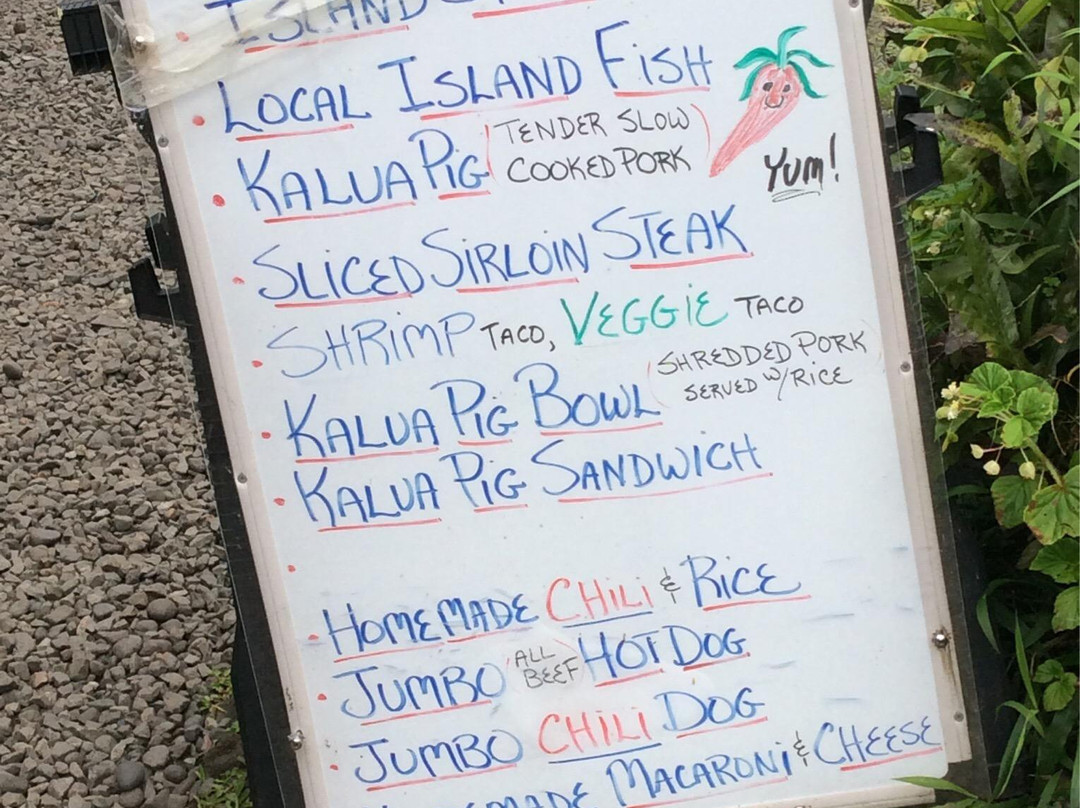 ISLAND
LOCAL ISLAND FISH
KALUA PIG (TENDER SLOW
COOKED PORK)
YUM!
SLICED SIRLOIN STEAK
SHRIMP TACO, VEGGIE TACO
KALUA PIG BOWL (SHREDDED PORK
SERVED W/RICE)
KALUA PIG SANDWICH
HOMEMADE CHILI & RICE
JUMBO (ALL BEEF) HOT DOG
JUMBO CHILI DOG
MACARONI & CHEESE